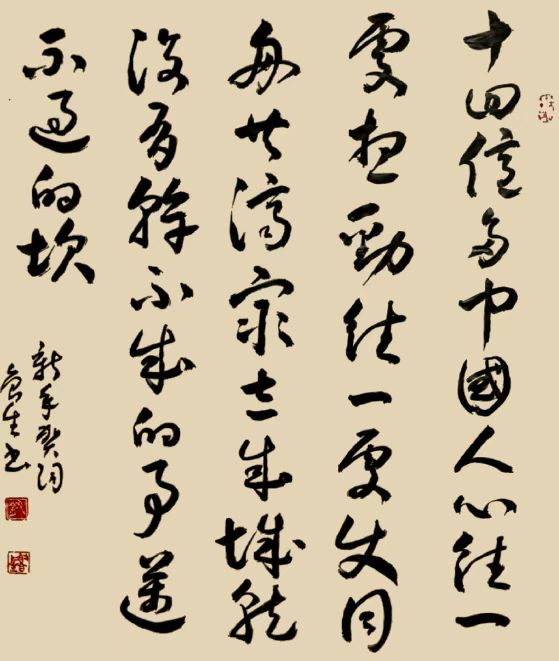 十四億多中國人心往一
處想勁往一處使同
舟共濟眾志成城就
沒有幹不成的事邁
不過的坎
新年賀詞
生书